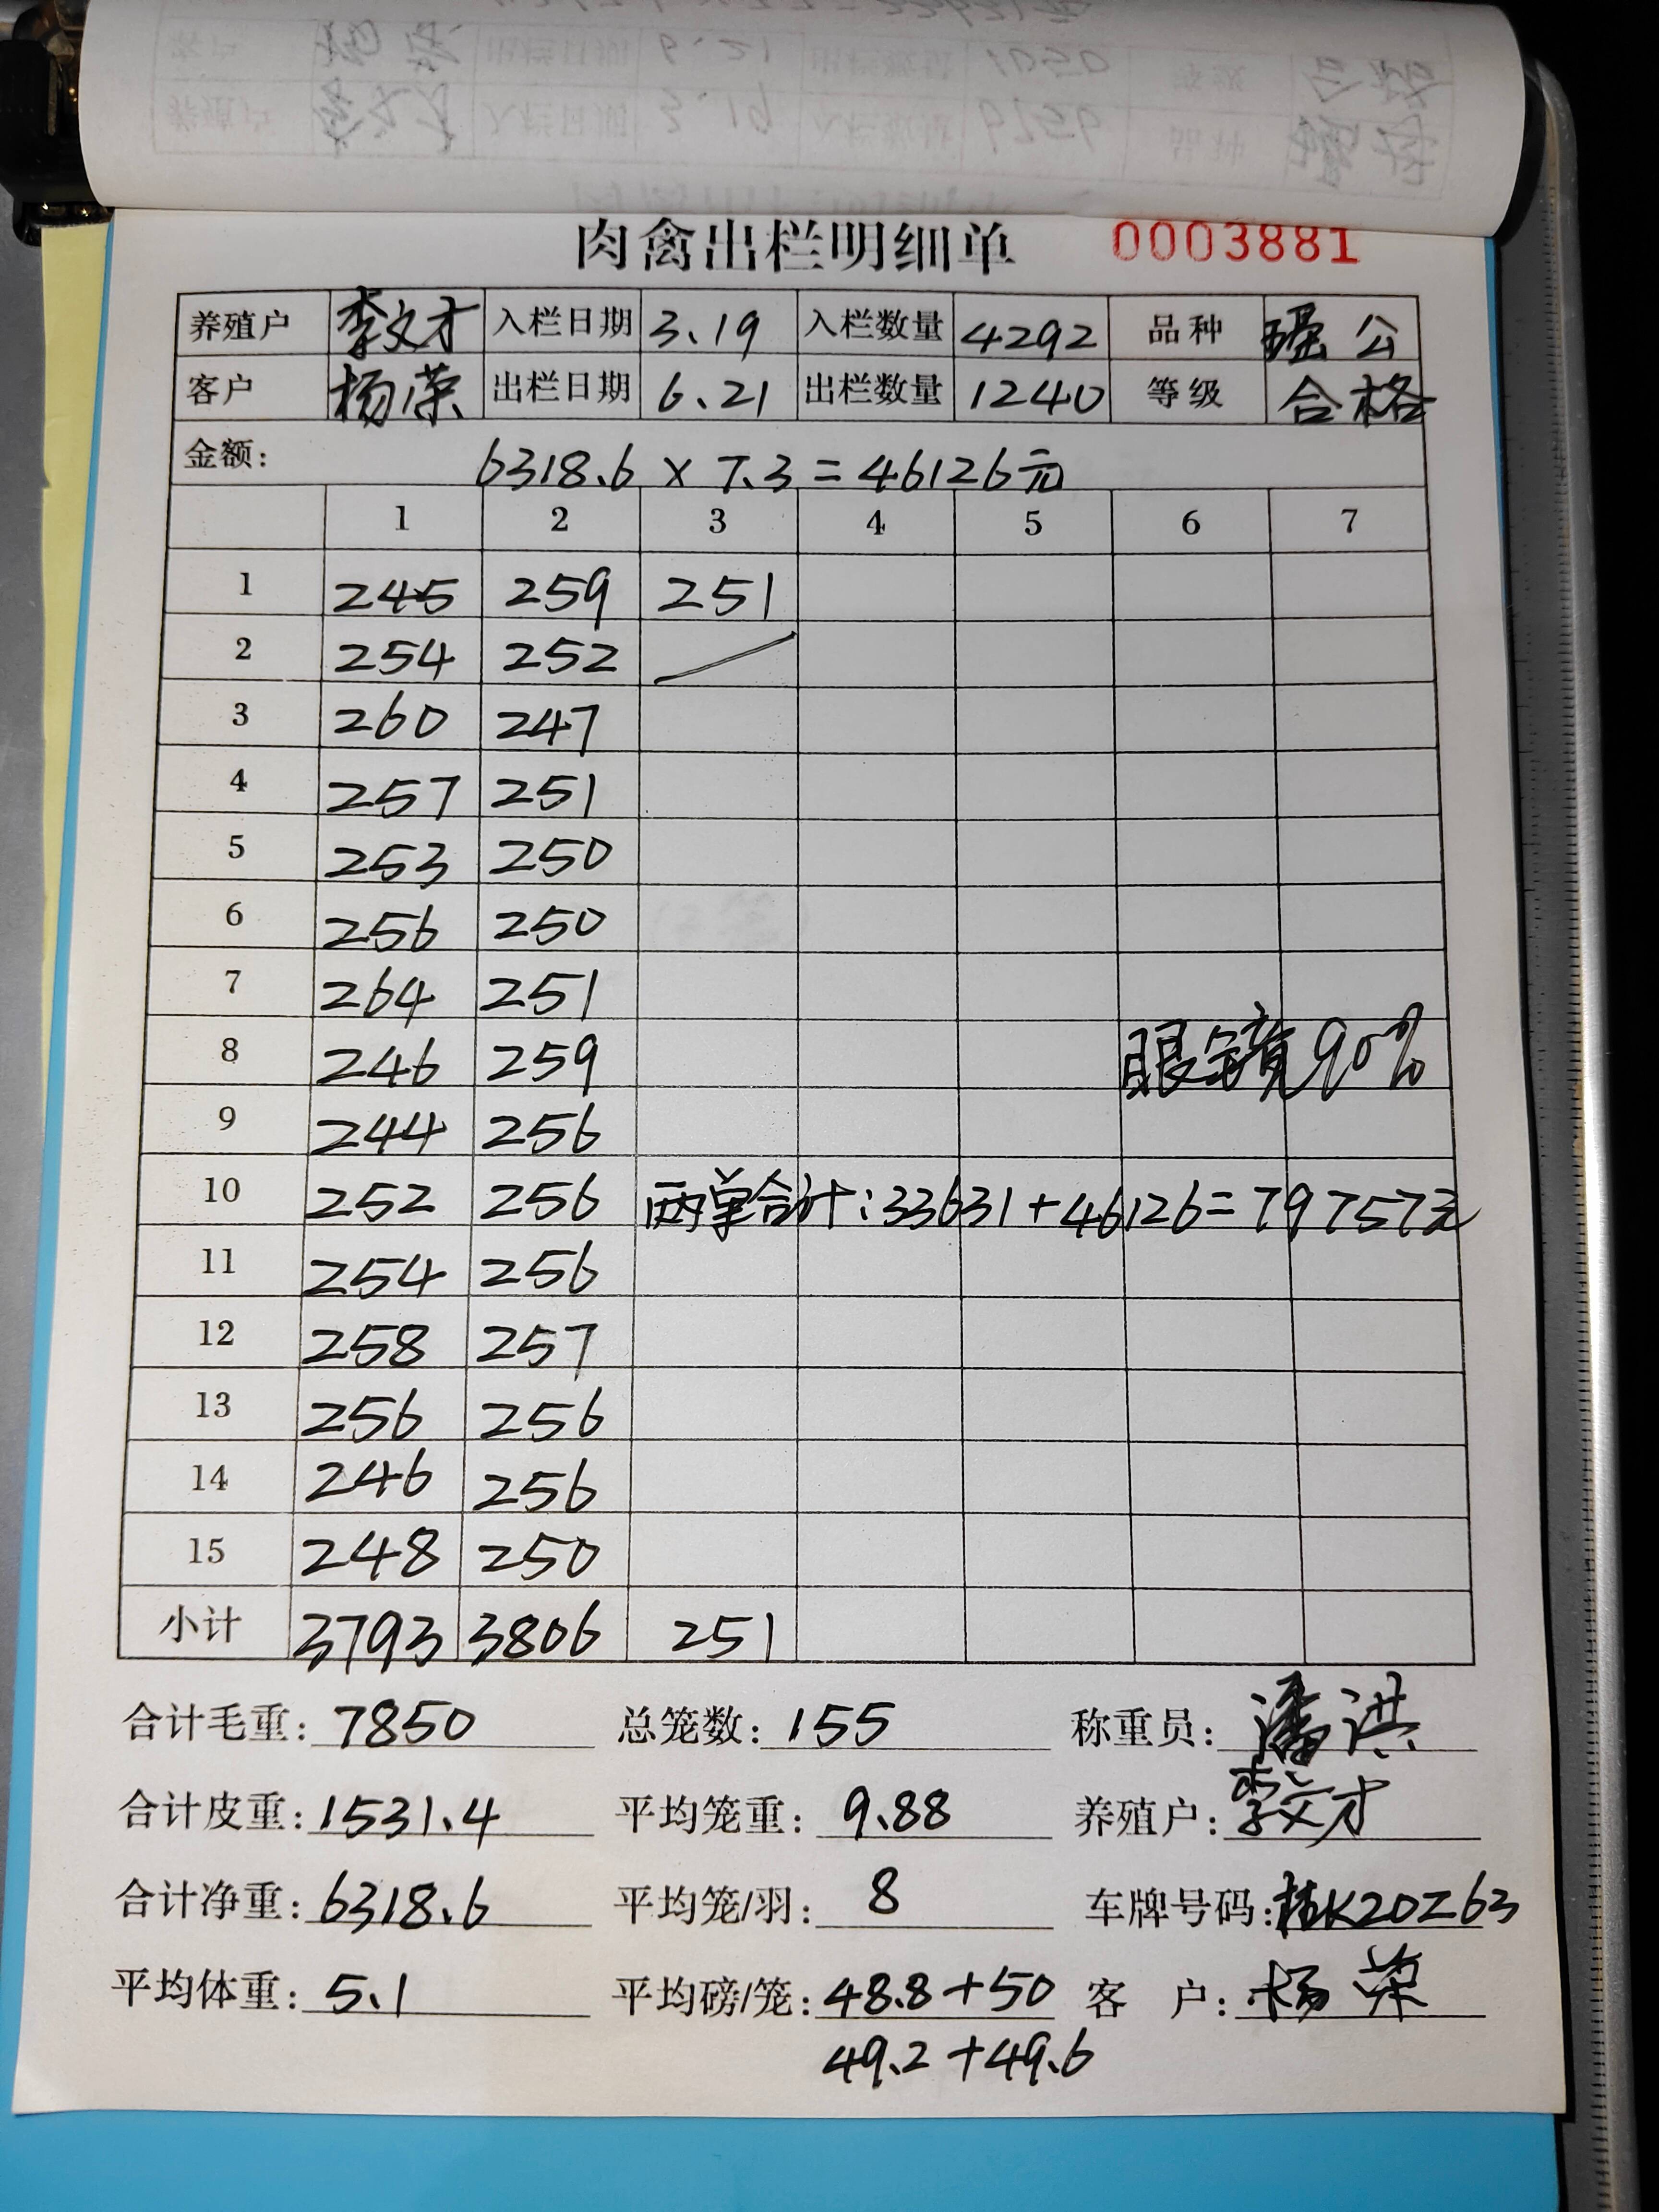 肉禽出栏明细单 0003881
养殖户 李文才 入栏日期 3.19 入栏数量 4292 品种 瑶公
客户 杨荣 出栏日期 6.21 出栏数量 1240 等级 合格
金额: 6318.6 × 7.3 = 46126元
1 2 3 4 5 6 7
1 245 259 251
2 254 252
3 260 247
4 257 251
5 253 250
6 256 250
7 264 251
8 246 259 眼镜90%
9 244 256
10 252 256 两单合计:33631+46126=79757元
11 254 256
12 258 257
13 256 256
14 246 256
15 248 250
小计 3793 3806 251
合计毛重: 7850 总笼数: 155 称重员: 潘洪
合计皮重: 1531.4 平均笼重: 9.88 养殖户: 李文才
合计净重: 6318.6 平均笼/羽: 8 车牌号码: 桂K20Z63
平均体重: 5.1 平均磅/笼: 48.8+50 客 户: 杨荣
49.2+49.6